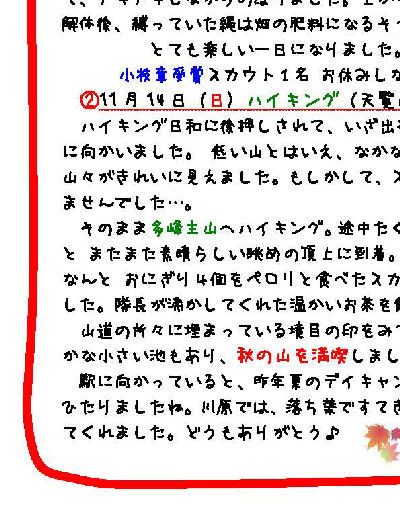 解体後、縛っていた縄は畑の肥料になるそ
とても楽しい一日になりました。
小枝章受賞スカウト1名 お休みしな
②11月14日(日)ハイキング(天覧
ハイキング日和に後押しされて、いざ出
に向かいました。 低い山とはいえ、なかな
山々がきれいに見えました。もしかして、ス
ませんでした…。
そのまま多峰主山へハイキング。途中たく
と またまた素晴らしい眺めの頂上に到着。
なんと おにぎり4個をペロリと食べたスカ
した。隊長が沸かしてくれた温かいお茶を飲
山道の所々に埋まっている境目の印をみて
かな小さい池もあり、秋の山を満喫しまし
駅に向かっていると、昨年夏のデイキャン
ひたりましたね。川原では、落ち葉ですてき
てくれました。どうもありがとう♪